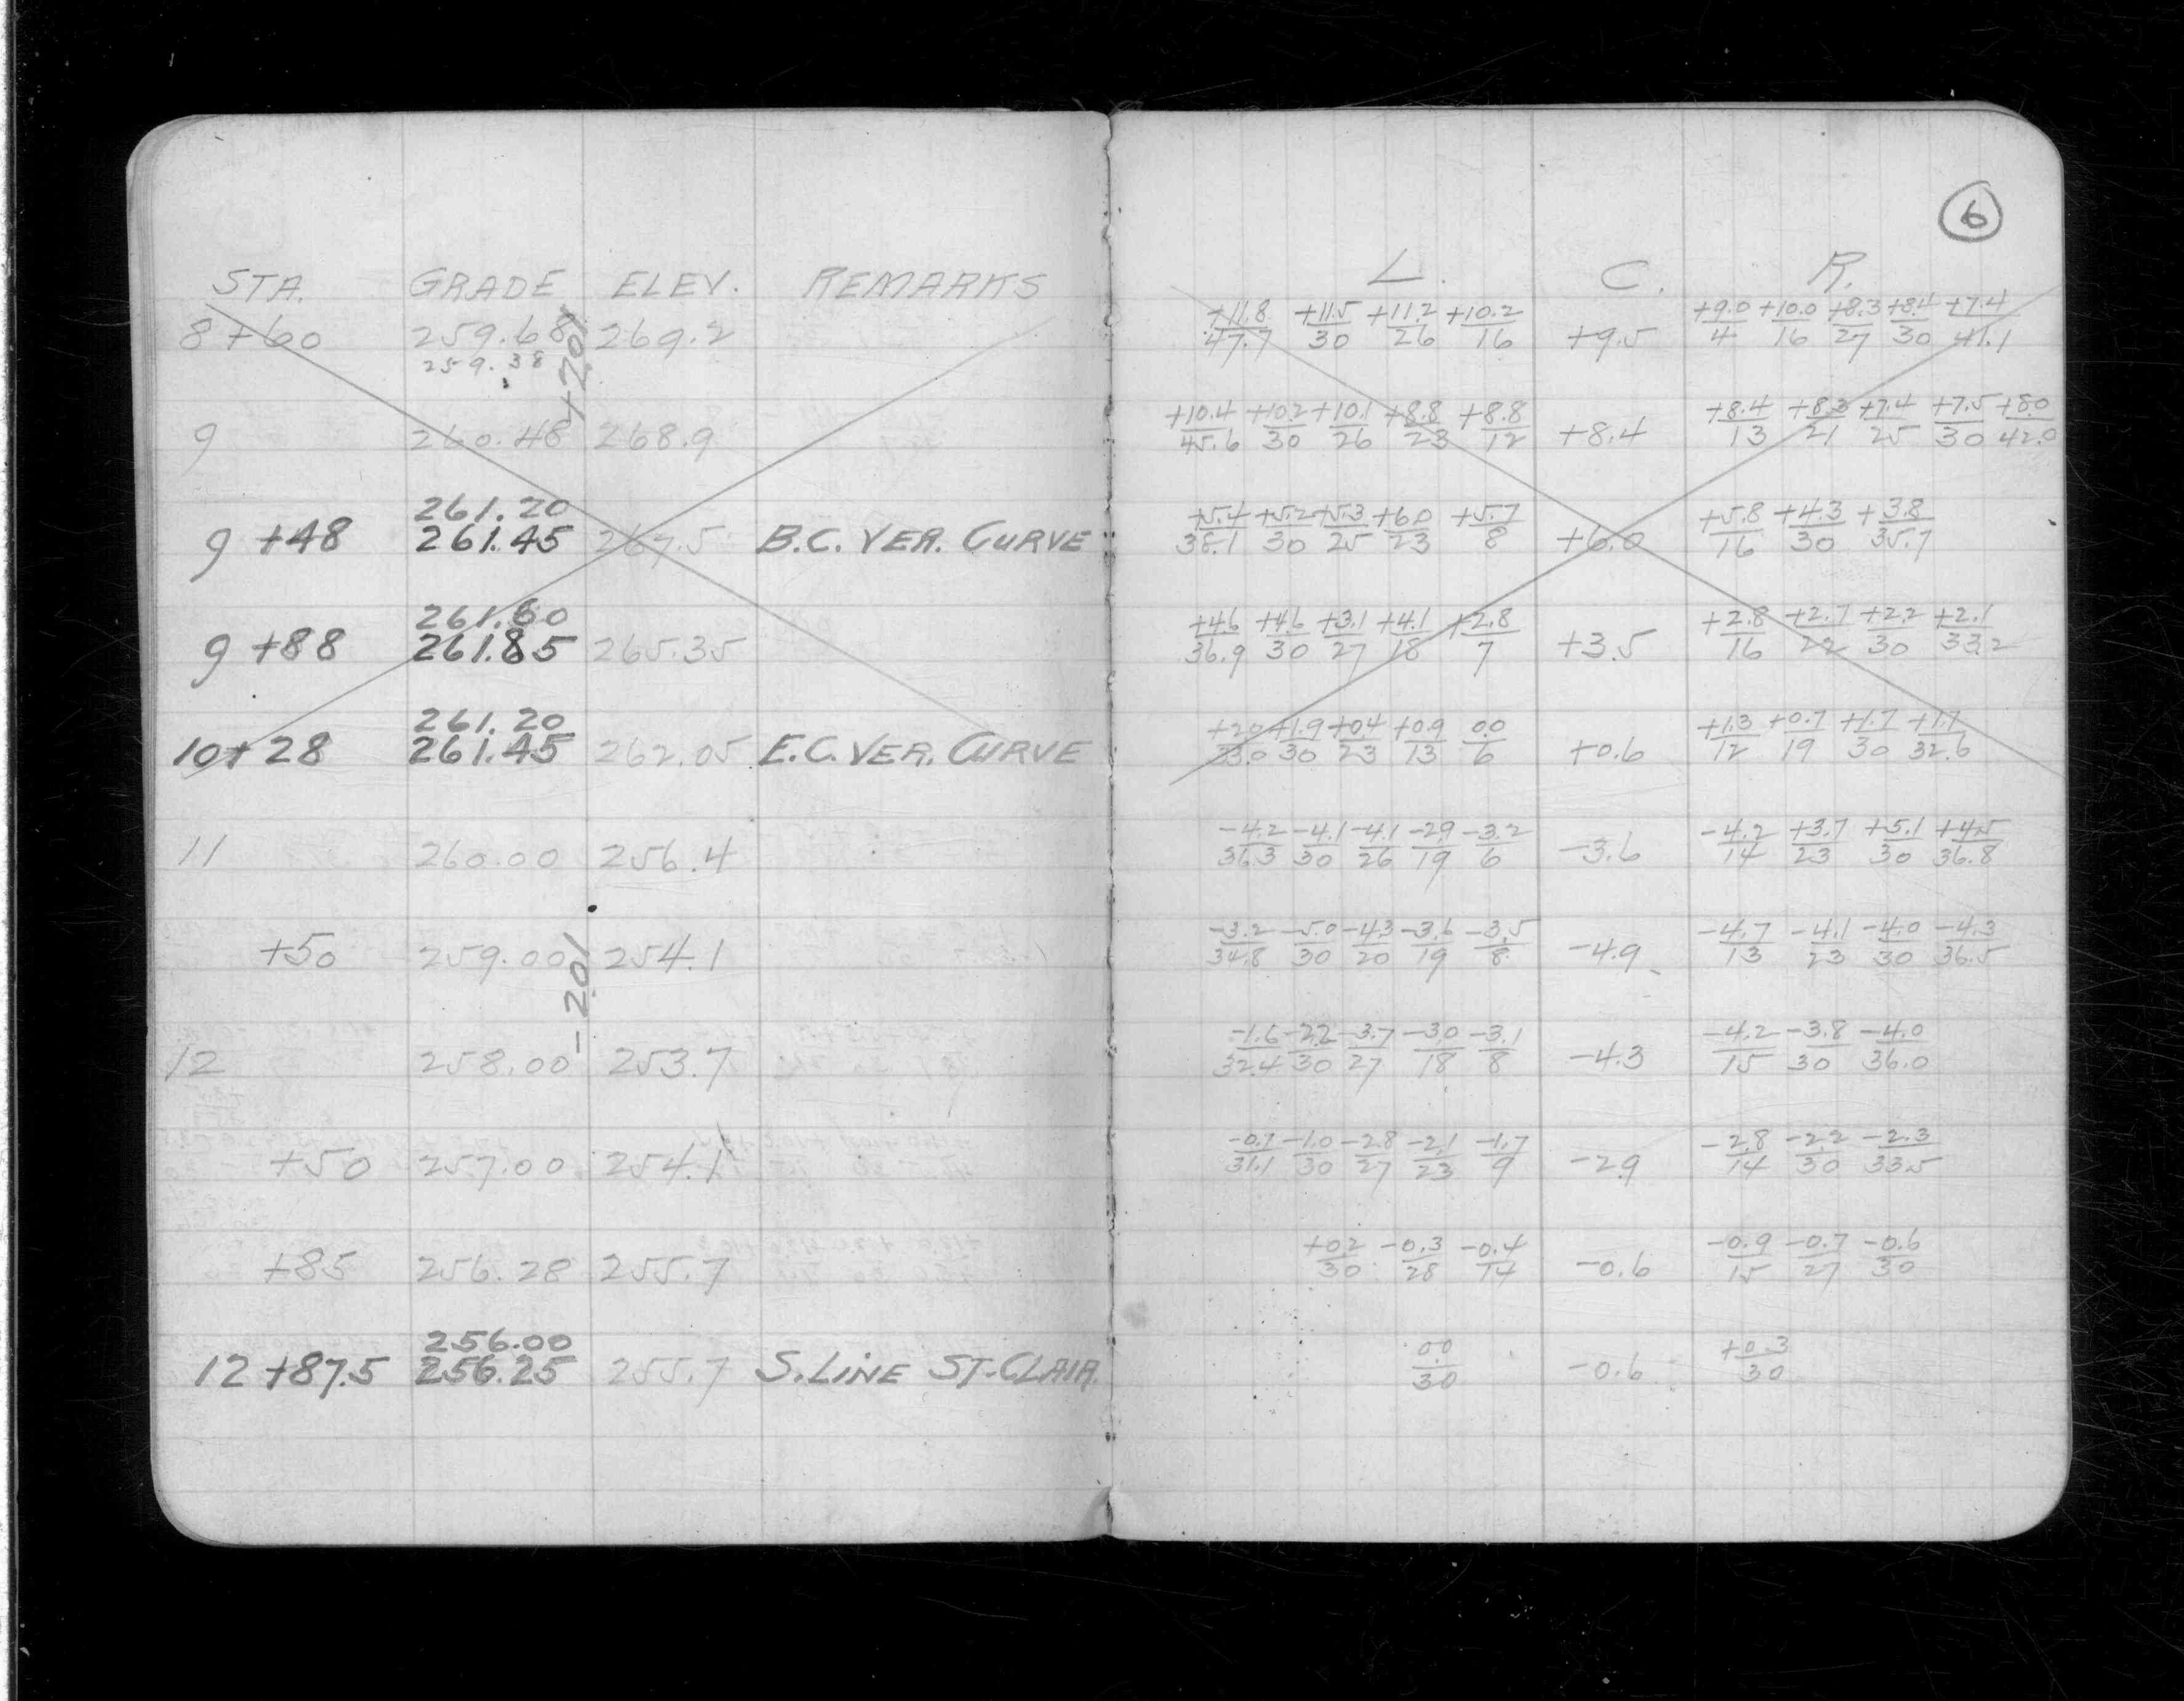 6
STA. GRADE ELEV. REMARKS L. C. R.
8+60 259.68 269.2 +11.8/47.7 +11.5/30 +11.2/26 +10.2/16 +9.5 +9.0/4 +10.0/16 +8.3/27 +8.4/30 +7.4/41.1
259.38
+2.01
9 260.48 268.9 +10.4/45.6 +10.2/30 +10.1/26 +8.8/23 +8.8/12 +8.4 +8.4/13 +8.3/21 +7.4/25 +7.5/30 +8.0/42.0
261.20
9+48 261.45 267.5 B.C. VER. CURVE +5.4/38.1 +5.2/30 +5.3/25 +6.0/23 +5.7/8 +6.0 +5.8/16 +4.3/30 +3.8/35.7
261.60
9+88 261.85 265.35 +4.6/36.9 +4.6/30 +3.1/27 +4.1/18 +2.8/7 +3.5 +2.8/16 +2.7/22 +2.2/30 +2.1/33.2
261.20
10+28 261.45 262.05 E.C. VER. CURVE +2.0/33.0 +1.9/30 +0.4/23 +0.9/13 0.0/6 +0.6 +1.3/12 +0.7/19 +1.7/30 +1.7/32.6
11 260.00 256.4 -4.2/36.3 -4.1/30 -4.1/26 -2.9/19 -3.2/6 -3.6 -4.2/14 +3.7/23 +5.1/30 +4.5/36.8
+50 259.00 254.1 -3.2/34.8 -5.0/30 -4.3/20 -3.6/19 -3.5/8 -4.9 -4.7/13 -4.1/23 -4.0/30 -4.3/36.5
-2.01
12 258.00 253.7 -1.6/32.4 -2.2/30 -3.7/27 -3.0/18 -3.1/8 -4.3 -4.2/15 -3.8/30 -4.0/36.0
+50 257.00 254.1 -0.7/31.1 -1.0/30 -2.8/27 -2.1/23 -1.7/9 -2.9 -2.8/14 -2.2/30 -2.3/33.5
+85 256.28 255.7 +0.2/30 -0.3/28 -0.4/14 -0.6 -0.9/15 -0.7/27 -0.6/30
256.00
12+87.5 256.25 255.7 S. LINE ST. CLAIR. 0.0/30 -0.6 +0.3/30